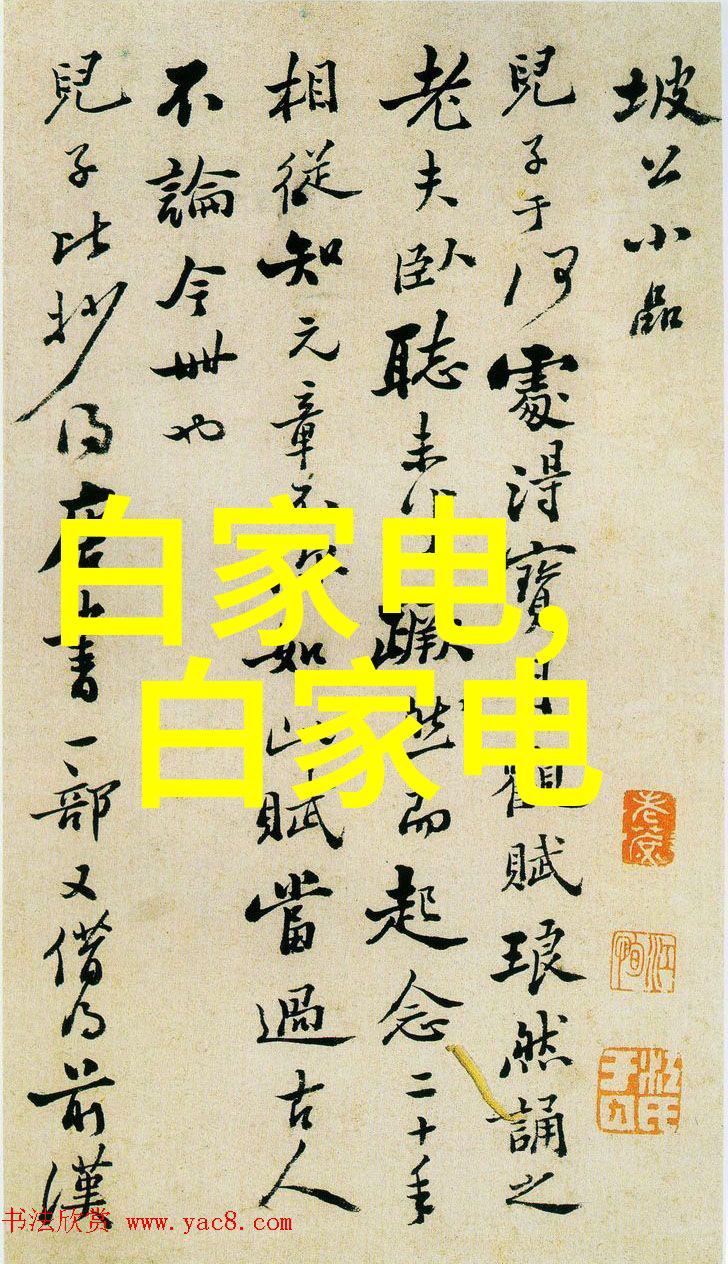 坡公小品
兒子于何處得寶月觀賦琅然誦之
老夫臥聽未半躍然而起念二十年
相從知元章不如此賦當過古人
不論今世也
兒子比抄得唐書一部又借得前漢
白家电,
白家电
书法欣赏 www.yac8.com